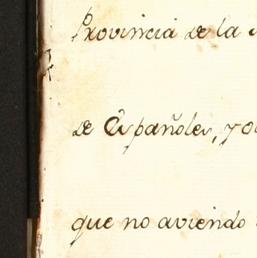 Provincia de la
de Españoles, y o
que no aviendo